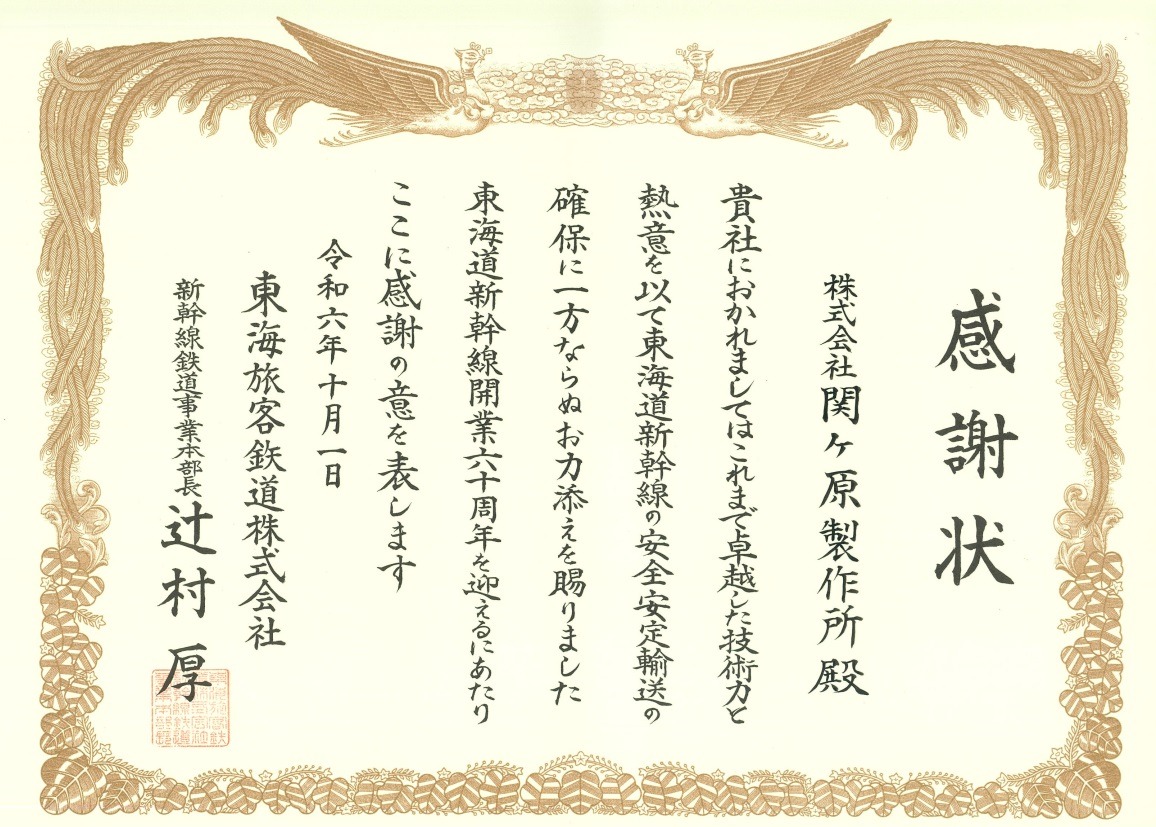 感謝状
株式会社関ヶ原製作所殿
貴社におかれましてはこれまで卓越した技術力と
熱意を以て東海道新幹線の安全安定輸送の
確保に一方ならぬお力添えを賜りました
東海道新幹線開業六十周年を迎えるにあたり
ここに感謝の意を表します
令和六年十月一日
東海旅客鉄道株式会社
新幹線鉄道事業本部長辻村厚